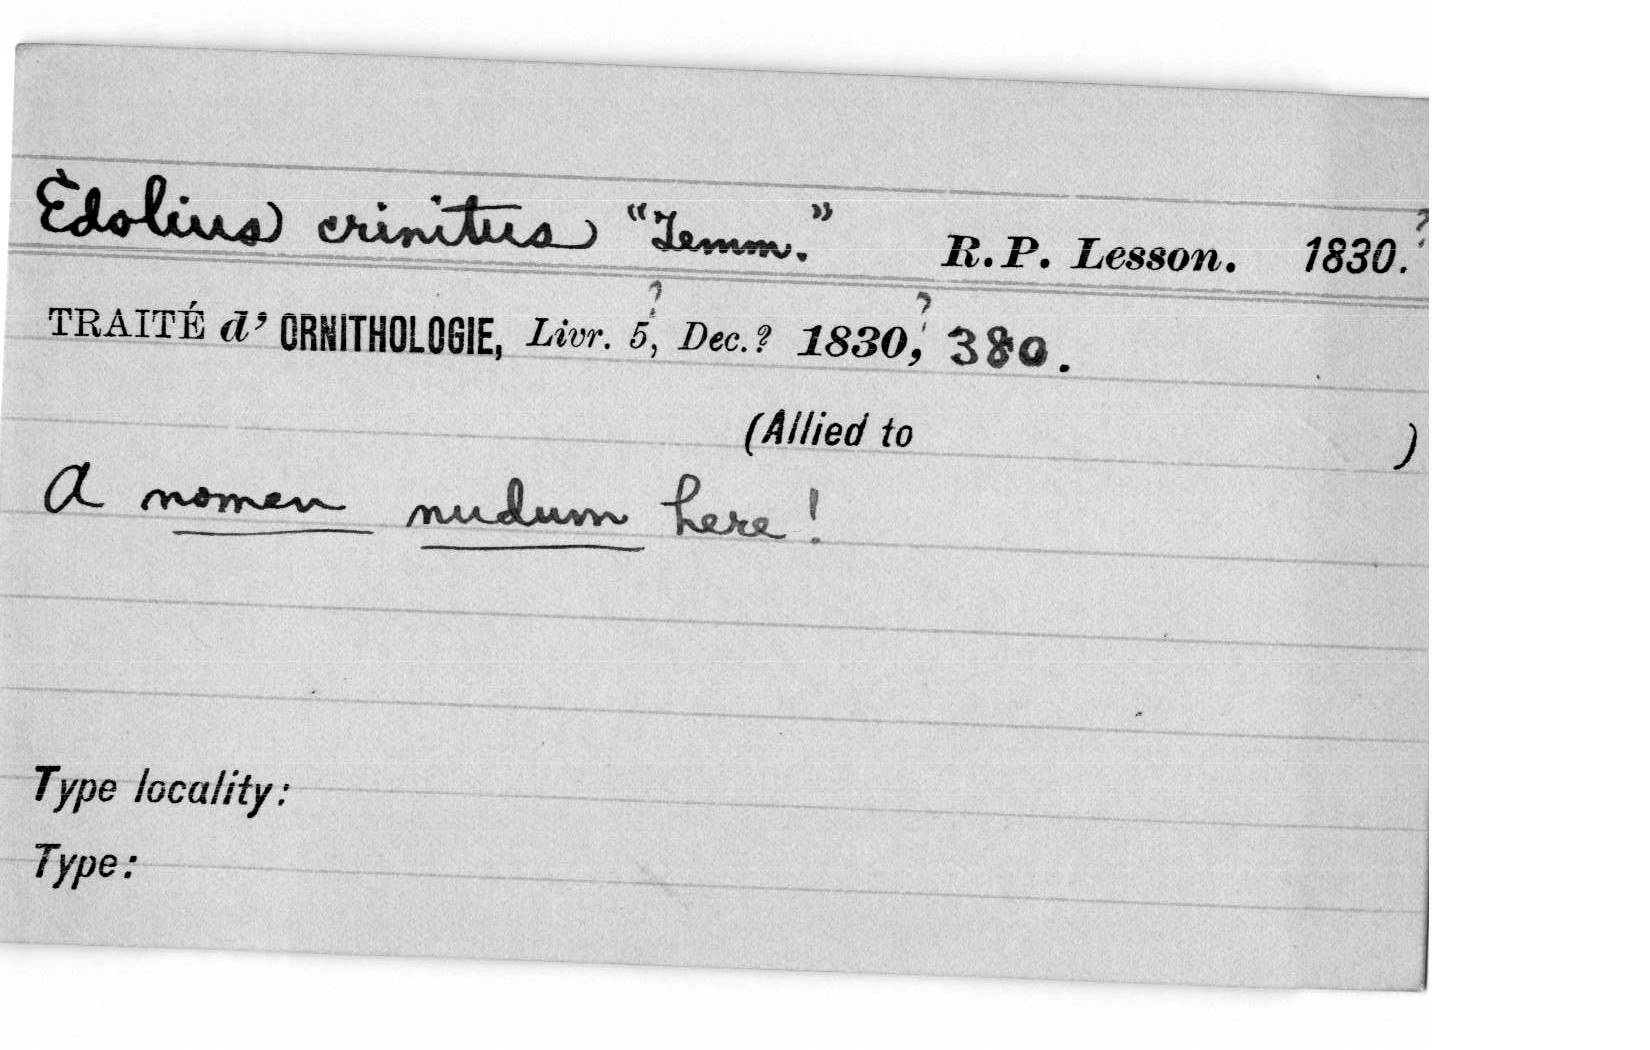 Edolius crinitus "Temm." R.P. Lesson. 1830.?
TRAITÉ d' ORNITHOLOGIE, Livr. 5?, Dec.? 1830,? 380.
(Allied to )
A nomen nudum here!
Type locality:
Type: